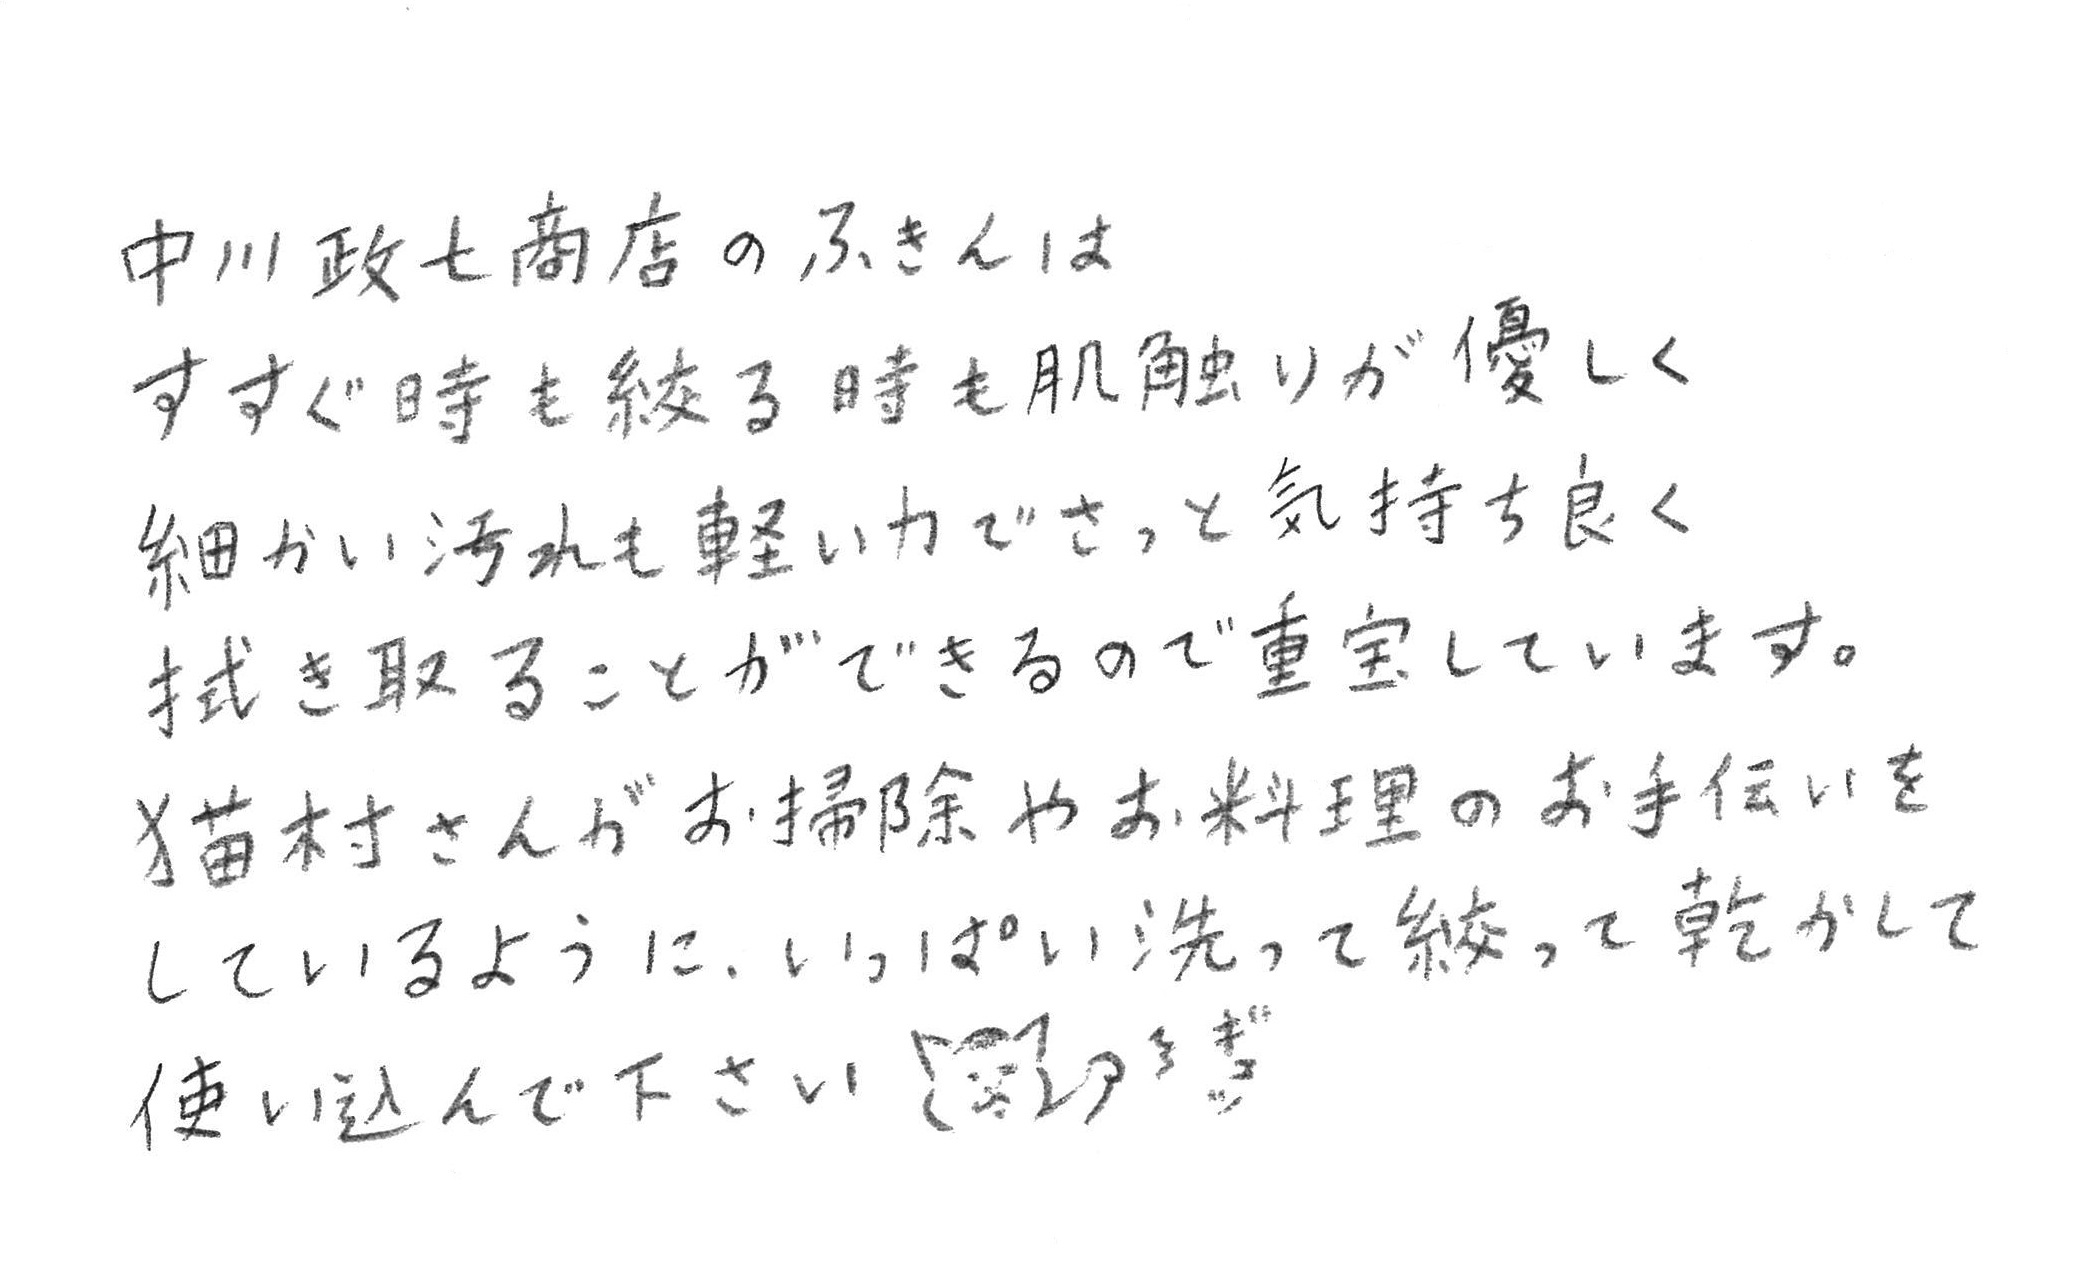 中川政七商店のふきんは
すすぐ時も絞る時も肌触りが優しく
細かい汚れも軽い力でさっと気持ち良く
拭き取ることができるので重宝しています。
猫村さんがお掃除やお料理のお手伝いを
しているように、いっぱい洗って絞って乾かして
使い込んで下さい ギュッ